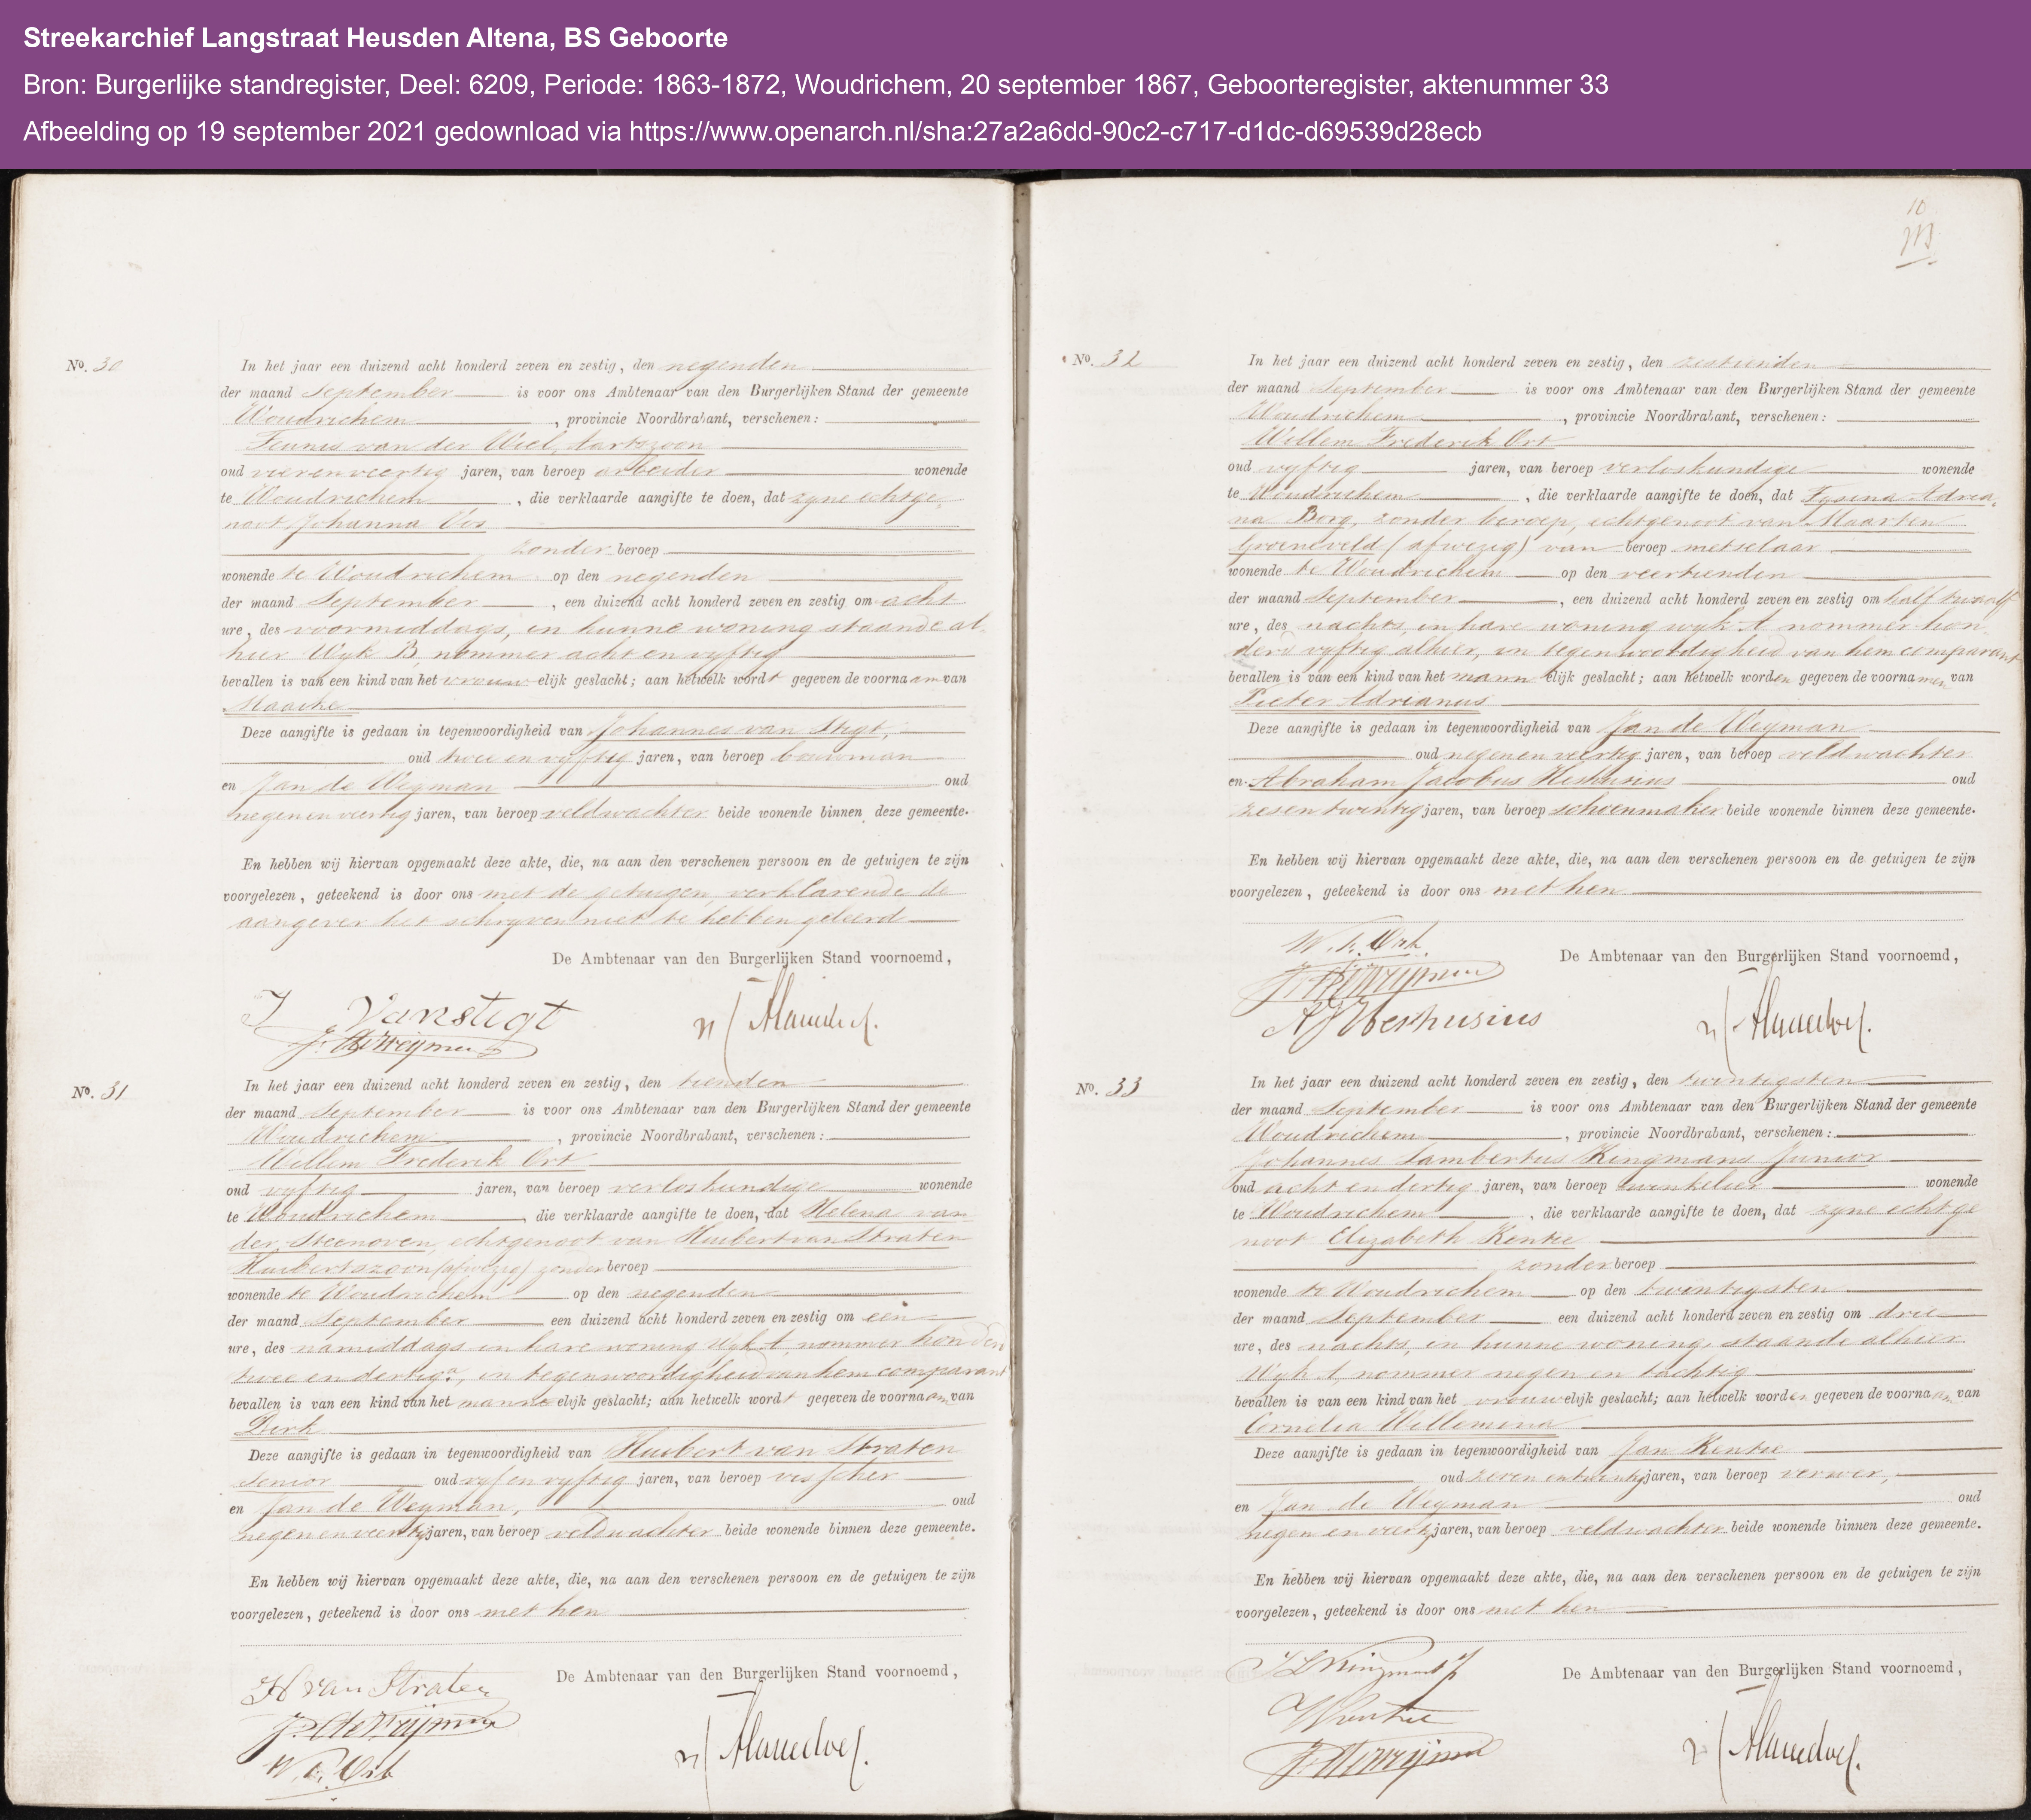 Streekarchief Langstraat Heusden Altena, BS Geboorte
Bron: Burgerlijke standregister, Deel: 6209, Periode: 1863-1872, Woudrichem, 20 september 1867, Geboorteregister, aktenummer 33
Afbeelding op 19 september 2021 gedownload via https://www.openarch.nl/sha:27a2a6dd-90c2-c717-d1dc-d69539d28ecb
No. 30
In het jaar een duizend acht honderd zeven en zestig, den negenden
der maand September is voor ons Ambtenaar van den Burgerlijken Stand der gemeente
Woudrichem, provincie Noordbrabant, verschenen:
Teunis van der Wiel, Aartszoon
oud vierenveertig jaren, van beroep arbeider wonende
te Woudrichem, die verklaarde aangifte te doen, dat zyne echtge
noot Johanna Vos
zonder beroep
wonende te Woudrichem op den negenden
der maand September, een duizend acht honderd zeven en zestig om acht
ure, des voormiddags, in hunne woning staande al
hier Wyk B, nommer acht en vyftig
bevallen is van een kind van het vrouwelijk geslacht; aan hetwelk wordt gegeven de voornaam van
Maaike
Deze aangifte is gedaan in tegenwoordigheid van Johannes van Stigt,
oud twee en vyftig jaren, van beroep bouwman
en Jan de Weyman oud
negenenveertig jaren, van beroep veldwachter beide wonende binnen deze gemeente.
En hebben wij hiervan opgemaakt deze akte, die, na aan den verschenen persoon en de getuigen te zijn
voorgelezen, geteekend is door ons met de getuigen, verklarende de
aangever het schryven niet te hebben geleerd
De Ambtenaar van den Burgerlijken Stand voornoemd,
J Van Stigt
J. de Weyman
No. 31
In het jaar een duizend acht honderd zeven en zestig, den tienden
der maand September is voor ons Ambtenaar van den Burgerlijken Stand der gemeente
Woudrichem, provincie Noordbrabant, verschenen:
Willem Frederik Ort
oud vyftig jaren, van beroep verloskundige wonende
te Woudrichem, die verklaarde aangifte te doen, dat Helena van
der Steenoven, echtgenoot van Huibert van Straten
Huibertszoon (afwezig) zonder beroep
wonende te Woudrichem op den negenden
der maand September een duizend acht honderd zeven en zestig om een
ure, des namiddags in hare woning Wyk A, nommer honderd
twee en dertig a, in tegenwoordigheid van hem comparant
bevallen is van een kind van het mannelijk geslacht; aan hetwelk wordt gegeven de voornaam van
Dirk
Deze aangifte is gedaan in tegenwoordigheid van Huibert van Straten
Senior oud vyf en vyftig jaren, van beroep visscher
en Jan de Weyman, oud
negenenveertig jaren, van beroep veldwachter beide wonende binnen deze gemeente.
En hebben wij hiervan opgemaakt deze akte, die, na aan den verschenen persoon en de getuigen te zijn
voorgelezen, geteekend is door ons met hen
De Ambtenaar van den Burgerlijken Stand voornoemd,
H van Straten
J. de Weyman
W. F. Ort
10
No. 32
In het jaar een duizend acht honderd zeven en zestig, den zestienden
der maand September is voor ons Ambtenaar van den Burgerlijken Stand der gemeente
Woudrichem, provincie Noordbrabant, verschenen:
Willem Frederik Ort
oud vyftig jaren, van beroep verloskundige wonende
te Woudrichem, die verklaarde aangifte te doen, dat Adria
na Borg, zonder beroep, echtgenoot van Maarten
Groeneveld (afwezig) van beroep metselaar
wonende te Woudrichem op den veertienden
der maand September, een duizend acht honderd zeven en zestig om half twaalf
ure, des nachts, in hare woning wyk A nommer hon
derd vyftig alhier, in tegenwoordigheid van hem comparant
bevallen is van een kind van het mannelijk geslacht; aan hetwelk worden gegeven de voornamen van
Pieter Adrianus
Deze aangifte is gedaan in tegenwoordigheid van Jan de Weyman
oud negenenveertig jaren, van beroep veldwachter
en Abraham Jacobus Heshusius oud
zesentwintig jaren, van beroep schoenmaker beide wonende binnen deze gemeente.
En hebben wij hiervan opgemaakt deze akte, die, na aan den verschenen persoon en de getuigen te zijn
voorgelezen, geteekend is door ons met hen
De Ambtenaar van den Burgerlijken Stand voornoemd,
W. F. Ort
J. de Weyman
A J Heshusius
No. 33
In het jaar een duizend acht honderd zeven en zestig, den twintigsten
der maand September is voor ons Ambtenaar van den Burgerlijken Stand der gemeente
Woudrichem, provincie Noordbrabant, verschenen:
Johannes Lambertus Kingmans Junior
oud acht en dertig jaren, van beroep winkelier wonende
te Woudrichem, die verklaarde aangifte te doen, dat zyne echtge
noot Elizabeth Kentie
zonder beroep
wonende te Woudrichem op den twintigsten
der maand September een duizend acht honderd zeven en zestig om drie
ure, des nachts, in hunne woning, staande alhier
Wyk A, nommer negen en tachtig
bevallen is van een kind van het vrouwelijk geslacht; aan hetwelk worden gegeven de voornaam van
Cornelia Willemina
Deze aangifte is gedaan in tegenwoordigheid van Jan Kentie
oud zeven en twintig jaren, van beroep verwer,
en Jan de Weyman oud
negen en veertig jaren, van beroep veldwachter beide wonende binnen deze gemeente.
En hebben wij hiervan opgemaakt deze akte, die, na aan den verschenen persoon en de getuigen te zijn
voorgelezen, geteekend is door ons met hen
De Ambtenaar van den Burgerlijken Stand voornoemd,
J L Kingmans Jr
Kentie
J. de Weyman